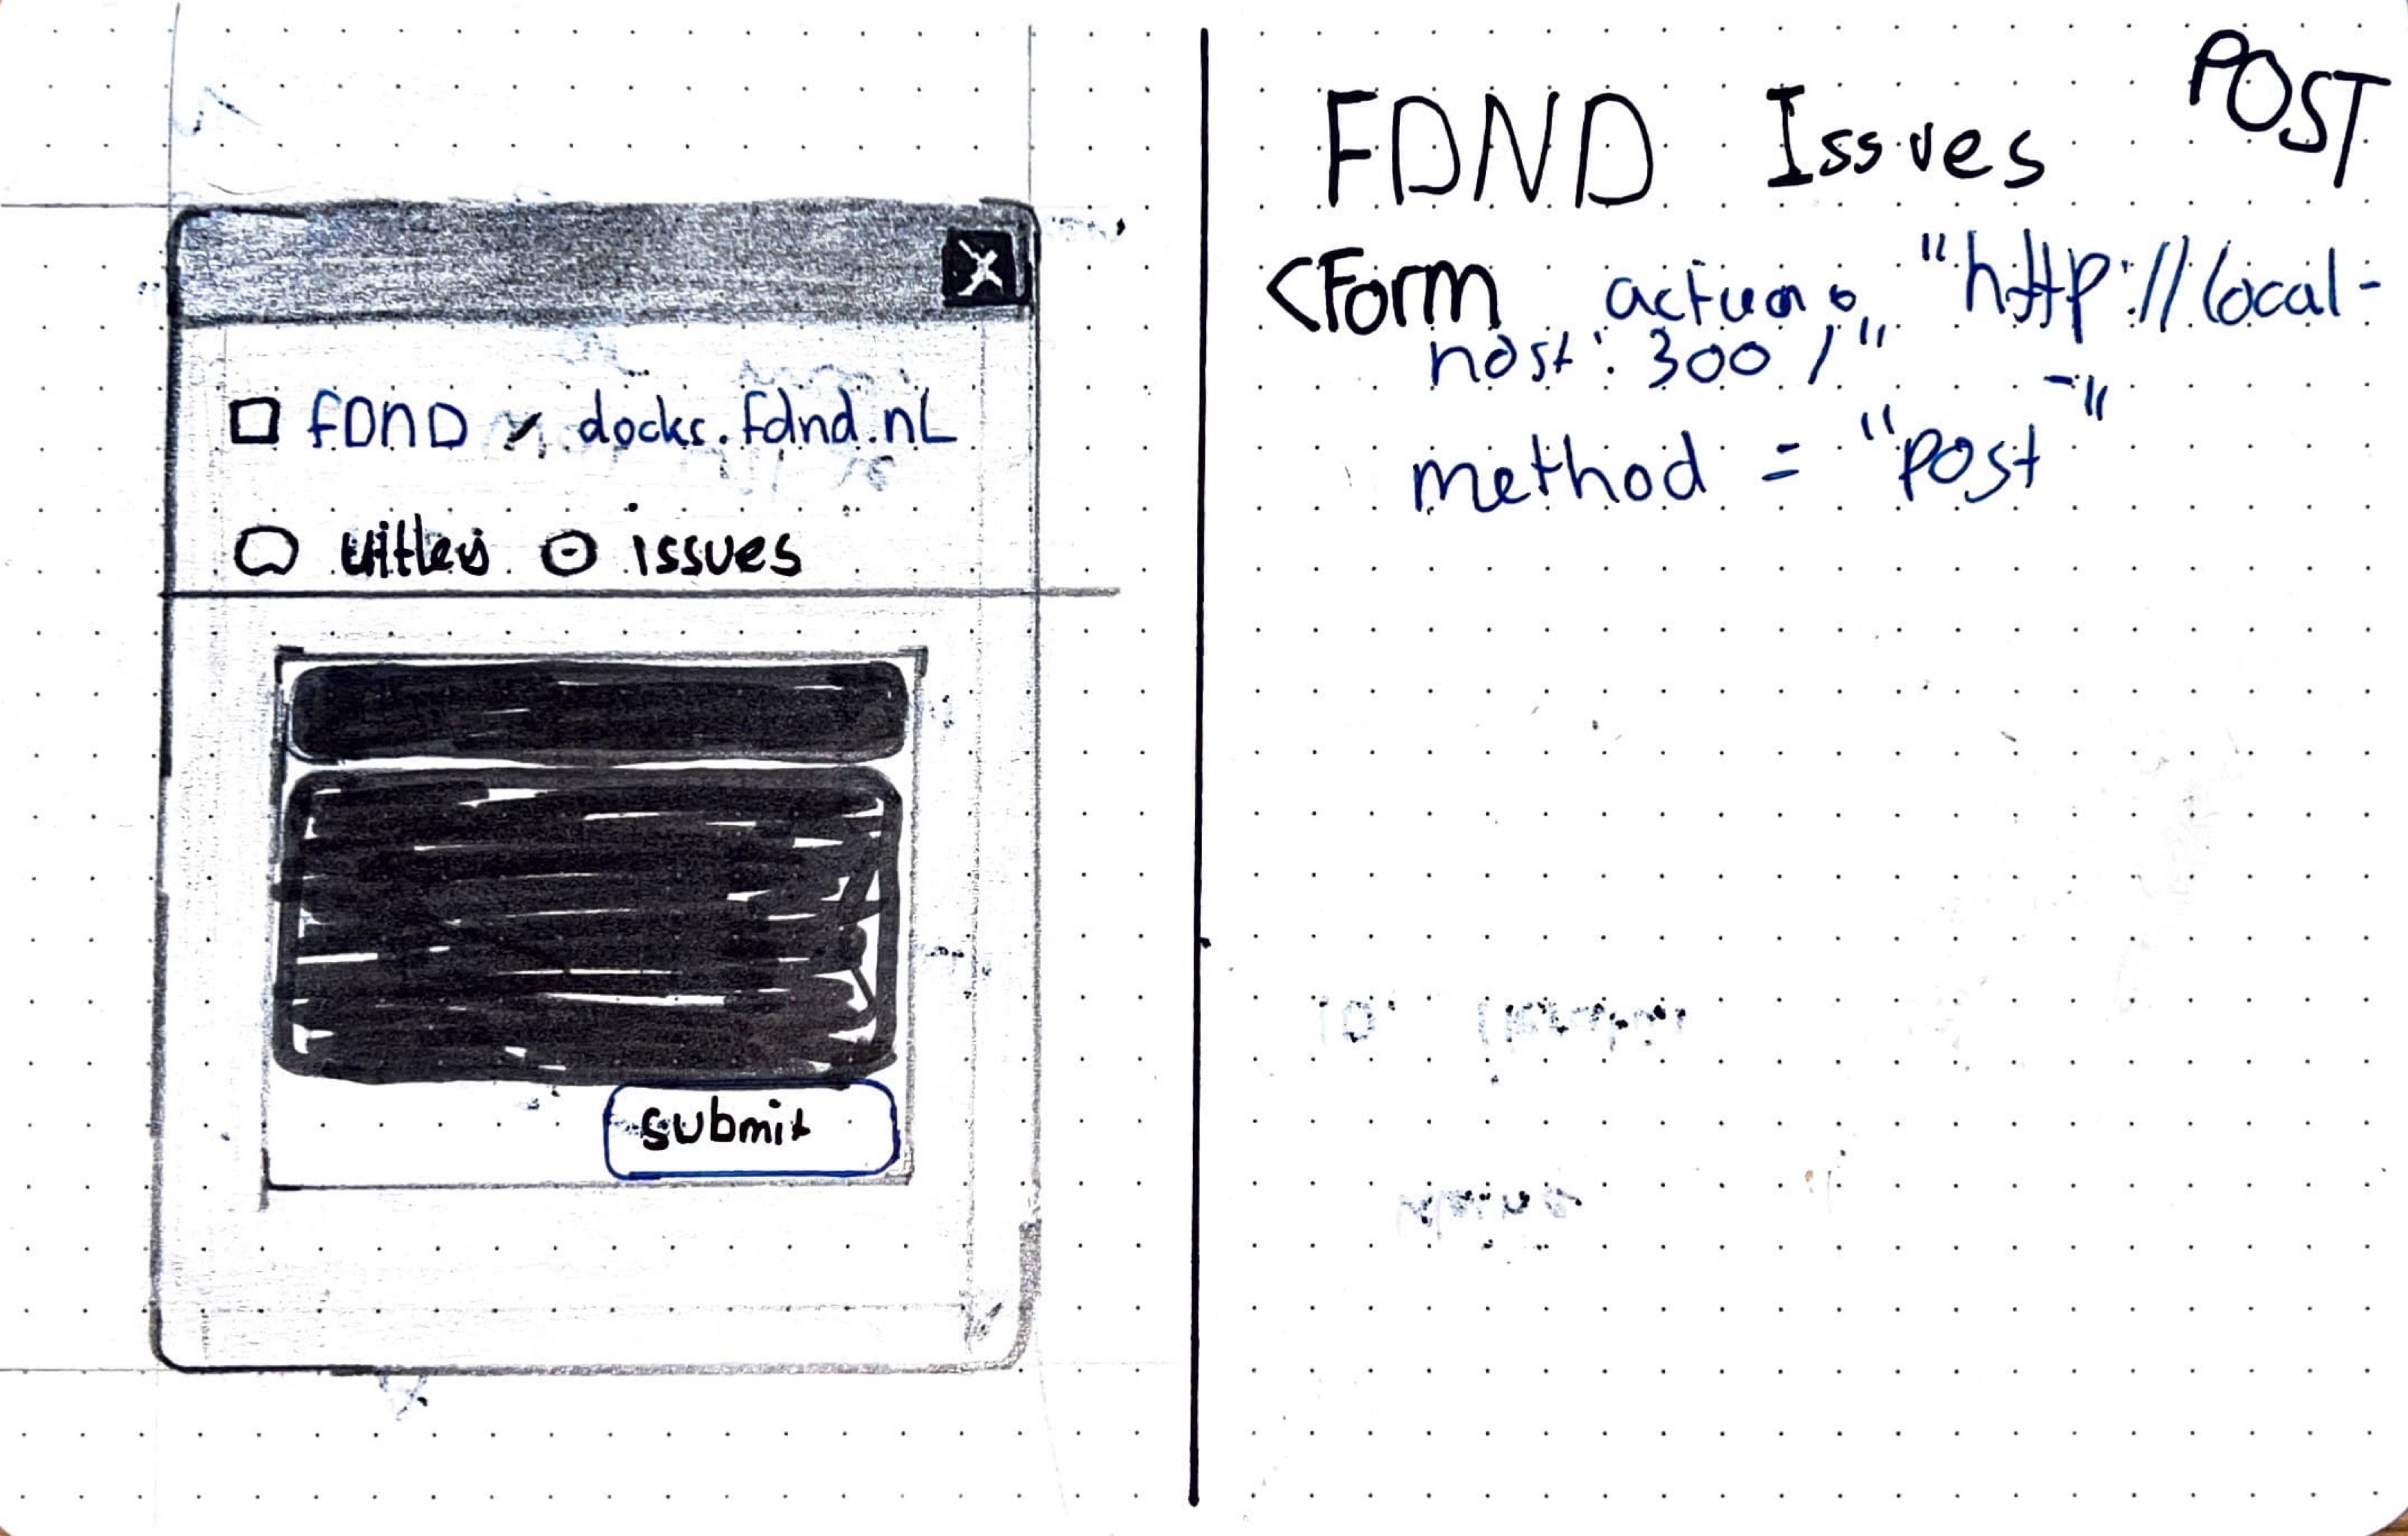 X
FDND / docks.fdnd.nl
uitleg issues
submit
POST
FDND Issues
<Form action = "http://local-
host: 300 /"
method = "post"